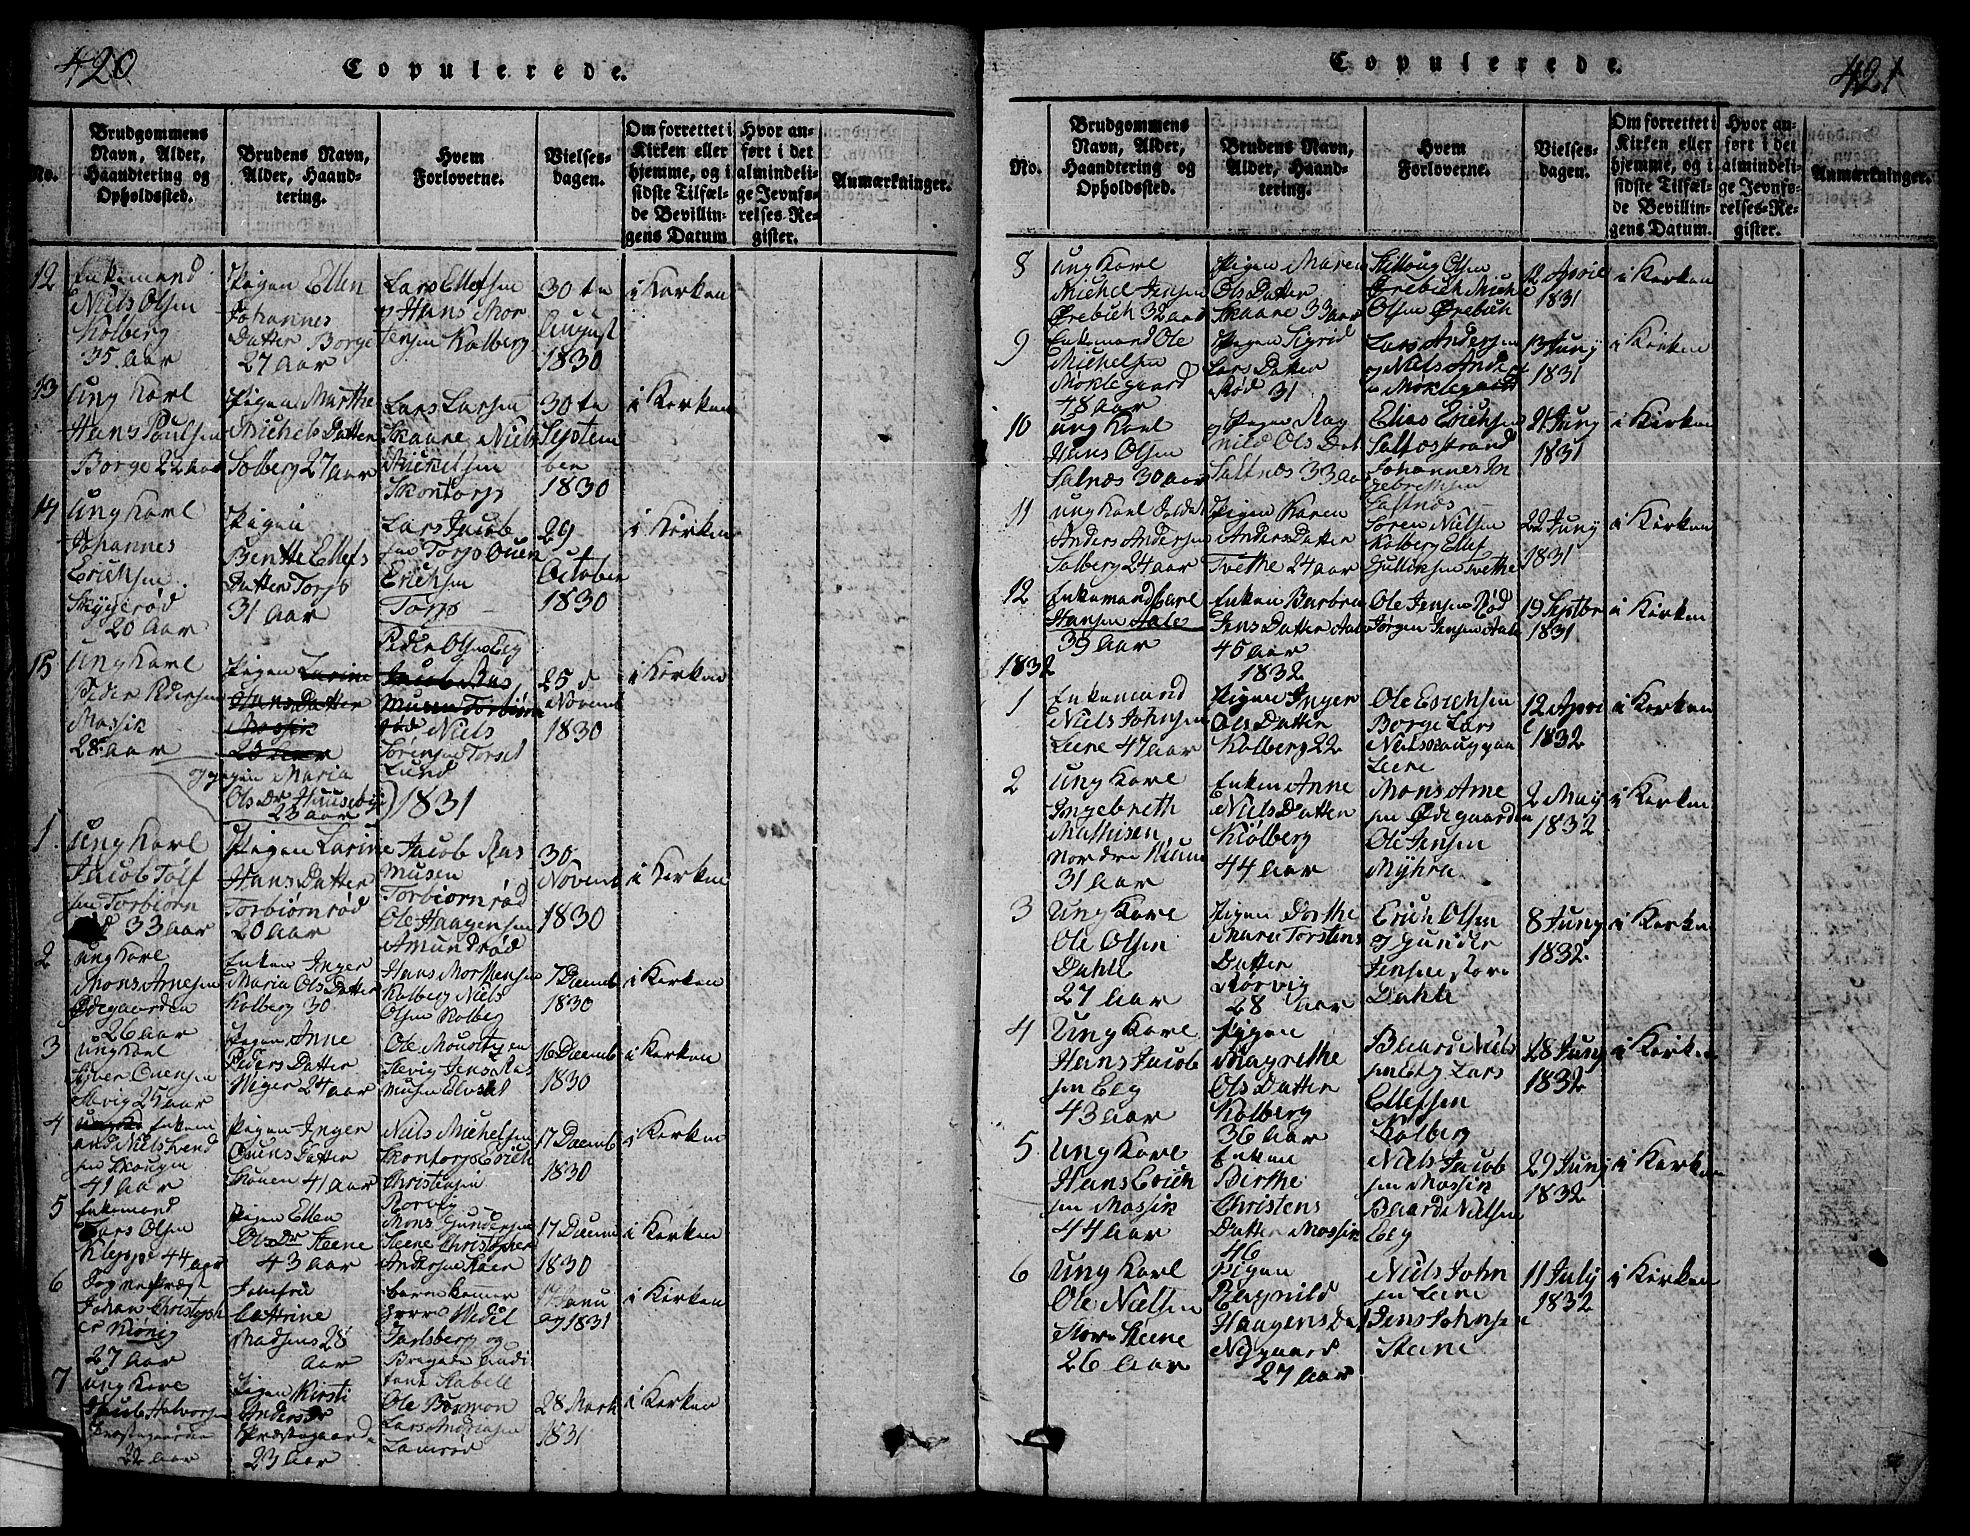 420
Copulerede.
No.
Brudgommens
Navn, Alder,
Haandtering og
Opholdssted.
Brudens Navn,
Alder, Haand-
tering.
Hvem
Forloverne.
Vielses-
dagen.
Om forrettet i
Kirken eller
hjemme, og i
sidste Tilfæl-
de Bevillin-
gens Datum
Hvor an-
ført i det
almindeli-
ge Jevnfø-
relses-Re-
gister.
Anmærkninger.
12
Enkemand
Niels Olsen
Kolberg
35 aar
Pigen Ellen
Johannes
Datter Borge
27 aar
Lars Ellefsen
Hans Mor
tensen Kolberg
30 te
August
1830
i Kirken
13
Ung Karl
Hans Paulsen
Borge 22 aar
Pigen Marthe
Michels Datter
Solberg 27 aar
Lars Larsen
Skaare Niels
Michelsen
Skontorp
30 te
Septem
ber
1830
i Kirken
14
Ung Karl
Johannes
Erichsen
Skyggerød
20 Aar
Pigen
Benthe Ellefs
Datter Torp
31 aar
Lars Jacob
sen Torp Ouen
Erichsen
Torp
29
October
1830
i Kirken
15
Ung Karl
Peder Pedersen
Mossik
28 aar
Pigen Larine
Hans Datter
Mossik
20 aar
og pigen Maria
Ols Dr Huuseby
23 aar
Peder Olsen Eeg
Jacob Ras
musen Torbiørn
rød Niels
Sørensen Torsel
Lund
25 d
Novemb
1830
i Kirken
1831
1.
Ung Karl
Jacob Tolf
sen Torbiørn
rød 33 aar
Pigen Larine
Hans Datter
Torbiørnrød
20 aar
Jacob Ras
musen
Torbiørnrød
Ole Haagensen
Amundrød
30
Novemb
1830
i Kirken
2
Ung Karl
Mons Arnesen
Ødegaarden
26 aar
Enken Inger
Maria Ols Datter
Kolberg 30
Hans Morthensen
Kolberg Niels
Olsen Kolberg
7 Decemb
1830
i Kirken
3
Ung Karl
Syver Ouensen
25 aar
Pigen Anne
Peders Datter
24 aar
Jens Ras
musen
16 Decemb
1830
i Kirken
4
Enkem
and Niels Svend
sen Skougen
41 aar
Pigen Inger
Ouens Datter
Skouen 41 aar
Niels Michelsen
Skontorp Erich
Christensen
Rørvig
17 Decemb
1830
i Kirken
5
Enkemand
Lars Olsen
Kleppe 44 aar
Pigen Ellen
Ols Dr Steene
43 aar
Mons Gundersen
Steene Christopher
Andersen
17 Decemb
1830
i Kirken
6
Sognepræst
Johan Christoph
er Kiønig
27 aar
Jomfru
Cattrine
Madsens 28
aar
Kammer
Herre Wedel
Jarlsberg og
Brigade Audi
teur
Janu
ary 1831
i Kirken
7
Ung Karl
Jacob Halvorsen
Præstegaarden
22 aar
Pigen Kirsti
Anders Dr
Præstegaard
23 aar
Ole Bormon
Lars Andersen
Lamrød
28 Mart
1831
i Kirken
421
Copulerede.
No.
Brudgommens
Navn, Alder,
Haandtering og
Opholdssted.
Brudens Navn,
Alder, Haand-
tering.
Hvem
Forloverne.
Vielses-
dagen.
Om forrettet i
Kirken eller
hjemme, og i
sidste Tilfæl-
de Bevillin-
gens Datum.
Hvor an-
ført i det
almindeli-
ge Jevnfø-
relses-Re-
gister.
Anmærkninger.
8
Ung Karl
Michel Jensen
Ørebich 32 aar
Pigen Maren
Ols Datter
Skaare 33 aar
Olsen
Ørebich Michel
Olsen Ørebich
12 April
1831
i Kirken
9
Enkemand Ole
Michelsen
Møklegaard
48 aar
Pigen Sigrid
Lars Datter
Rød 31
Lars Andersen
og Niels Anders
en Møklegaard
13 Juny
1831
i Kirken
10
Ung Karl
Hans Olsen
Saltnæs 30 aar
Pigen Rag
nild Ols Dat
Saltnæs 33 aar
Elias Erichsen
Saltnæsstrand
Johannes In
gebrethsen
Saltnæs
21 Juny
1831
i Kirken
11
Ung Karl Soldat
Anders Andersen
Solberg 24 aar
Pigen Karen
Anders Datter
Tvethe 24 aar
Søren Nielsen
Kolberg Ellef
Gulliksen Tvethe
22 Juny
1831
i Kirken
12
Enkemand Carl
Hansen Aale
39 aar
Enken Barbra
Jens Datter Aale
45 aar
Ole Jensen Rød
Jørgen Jensen Aale
19 Septbr
1831
i Kirken
1832
1832
1
Enkemand
Niels Johnsen
Leene 47 aar
Pigen Inger
Ols Datter
Kolberg 22
Ole Erichsen
Borge Lars
Nielsen
Leene
12 Apri
l 1832
i Kirken
2
Ung Karl
Ingebreth
Mathisen
Nordre
31 Aar
Enken Anne
Niels Datter
Kiølberg
44 aar
Mons Arne
sen Ødegaarden
Ole Jensen
Myhra
2 May
1832
i Kirken
3
Ung Karl
Ole Olsen
Dahle
27 Aar
Pigen Dorthe
Marie Torstens
Datter
Rørvig
28 aar
Erich Olsen
og Gunder
Jensen Store
Dahle
8 Juny
1832
i Kirken
4
Ung Karl
Hans Jacob
sen Eeg
43 aar
Pigen
Magrethe
Ols Datter
Kolberg
36 aar
Baard Niels
sen Eeg Lars
Ellefsen
Kolberg
28 Juny
1832
i Kirken
5
Ung Karl
Hans Erich
sen Mossik
44 aar
Enken
Birthe
Christens
Datter Mossik
46
Niels Jacob
sen Mossik
Baard Nielsen
Eeg
29 Juny
1832
i Kirken
6
Ung Karl
Ole Nielsen
Store Steene
26 Aar
Pigen
Ragnild
Haagens Dat
Nygaard
27 aar
Niels John
sen Leene
Jens Johnsen
Steene
11 July
1832
i Kirken